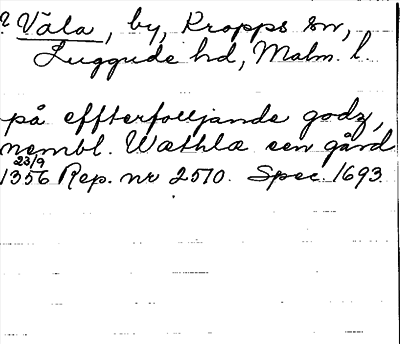 ? Väla, by, Kropps sn,
Luggude hd, Malm. l.
på effterfolljande godz,
nembl. Wæthlæ een gård
23/9
1356 Rep. nr 2510. Spec. 1693.